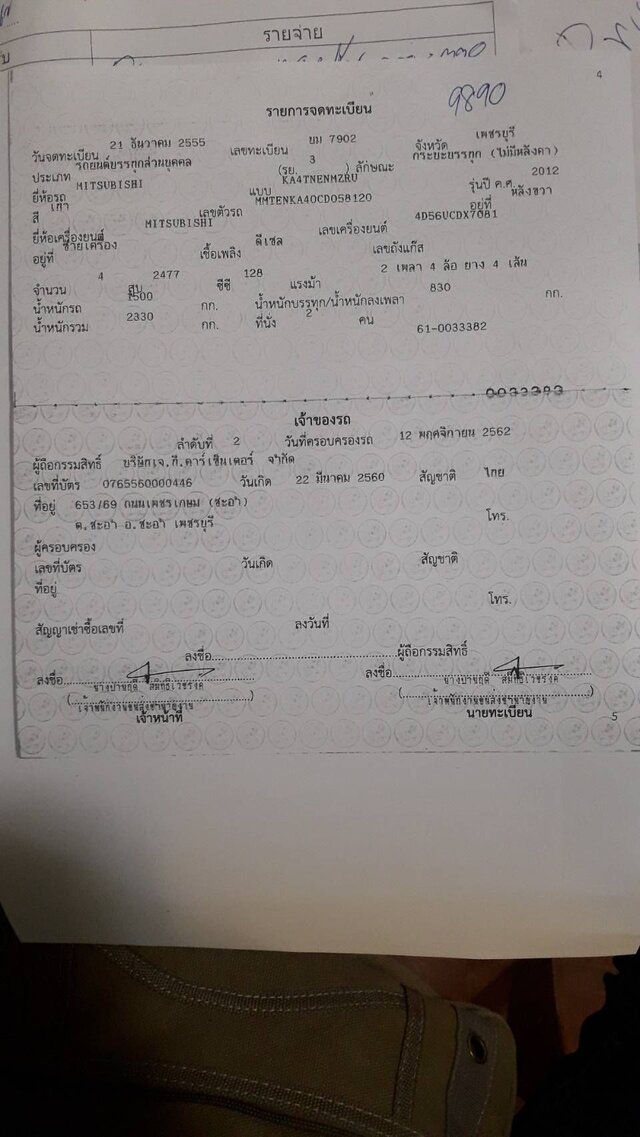 รายจ่าย
4
รายการจดทะเบียน
9890
วันจดทะเบียน 21 ธันวาคม 2555 เลขทะเบียน บม 7902 จังหวัด เพชรบุรี
ประเภท รถยนต์บรรทุกส่วนบุคคล (รย. 3 ) ลักษณะ กระบะบรรทุก (ไม่มีหลังคา)
ยี่ห้อรถ MITSUBISHI แบบ KA4TNENMZRU รุ่นปี ค.ศ. 2012
สี เทา เลขตัวรถ MMTENKA40CD058120 อยู่ที่ หลังขวา
ยี่ห้อเครื่องยนต์ MITSUBISHI เลขเครื่องยนต์ 4D56UCDX7081
อยู่ที่ ซ้ายเครื่อง เชื้อเพลิง ดีเซล เลขถังแก๊ส
จำนวน 4 สูบ 2477 ซีซี 128 แรงม้า 2 เพลา 4 ล้อ ยาง 4 เส้น
น้ำหนักรถ 1500 กก. น้ำหนักบรรทุก/น้ำหนักลงเพลา 830 กก.
น้ำหนักรวม 2330 กก. ที่นั่ง 2 คน 61-0033382
เจ้าของรถ
ลำดับที่ 2 วันที่ครอบครองรถ 12 พฤศจิกายน 2562
ผู้ถือกรรมสิทธิ์ บริษัทเจ.ที.คาร์เซ็นเตอร์ จำกัด
เลขที่บัตร 0765560000446 วันเกิด 22 มีนาคม 2560 สัญชาติ ไทย
ที่อยู่ 653/69 ถนนเพชรเกษม (ชะอำ)
ต.ชะอำ อ.ชะอำ เพชรบุรี โทร.
ผู้ครอบครอง
เลขที่บัตร วันเกิด สัญชาติ
ที่อยู่
โทร.
สัญญาเช่าซื้อเลขที่ ลงวันที่
ลงชื่อ ผู้ถือกรรมสิทธิ์
ลงชื่อ ลงชื่อ
เจ้าพนักงานขนส่งชำนาญงาน เจ้าพนักงานขนส่งชำนาญงาน
เจ้าหน้าที่ นายทะเบียน
5